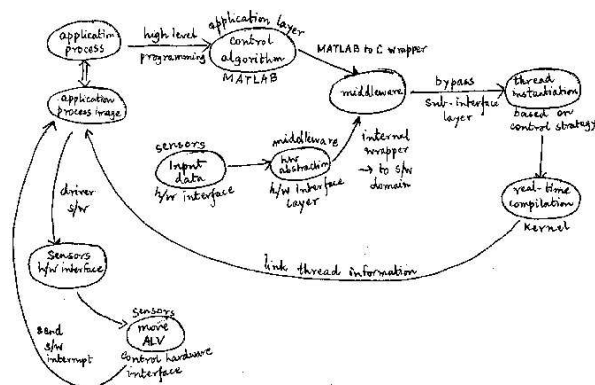 application
process
high level
programming
application layer
control
algorithm
MATLAB
MATLAB to C wrapper
middleware
bypass
sub-interface
layer
thread
instantiation
based on
control strategy
application
process image
sensors
Input
data
h/w interface
middleware
h/w
abstraction
h/w Interface
Layer
internal
wrapper
→ to S/W
domain
real-time
compilation
Kernel
driver
S/W
link thread information
Sensors
h/w interface
Sensors
move
ALV
control hardware
interface
send
S/W
interrupt